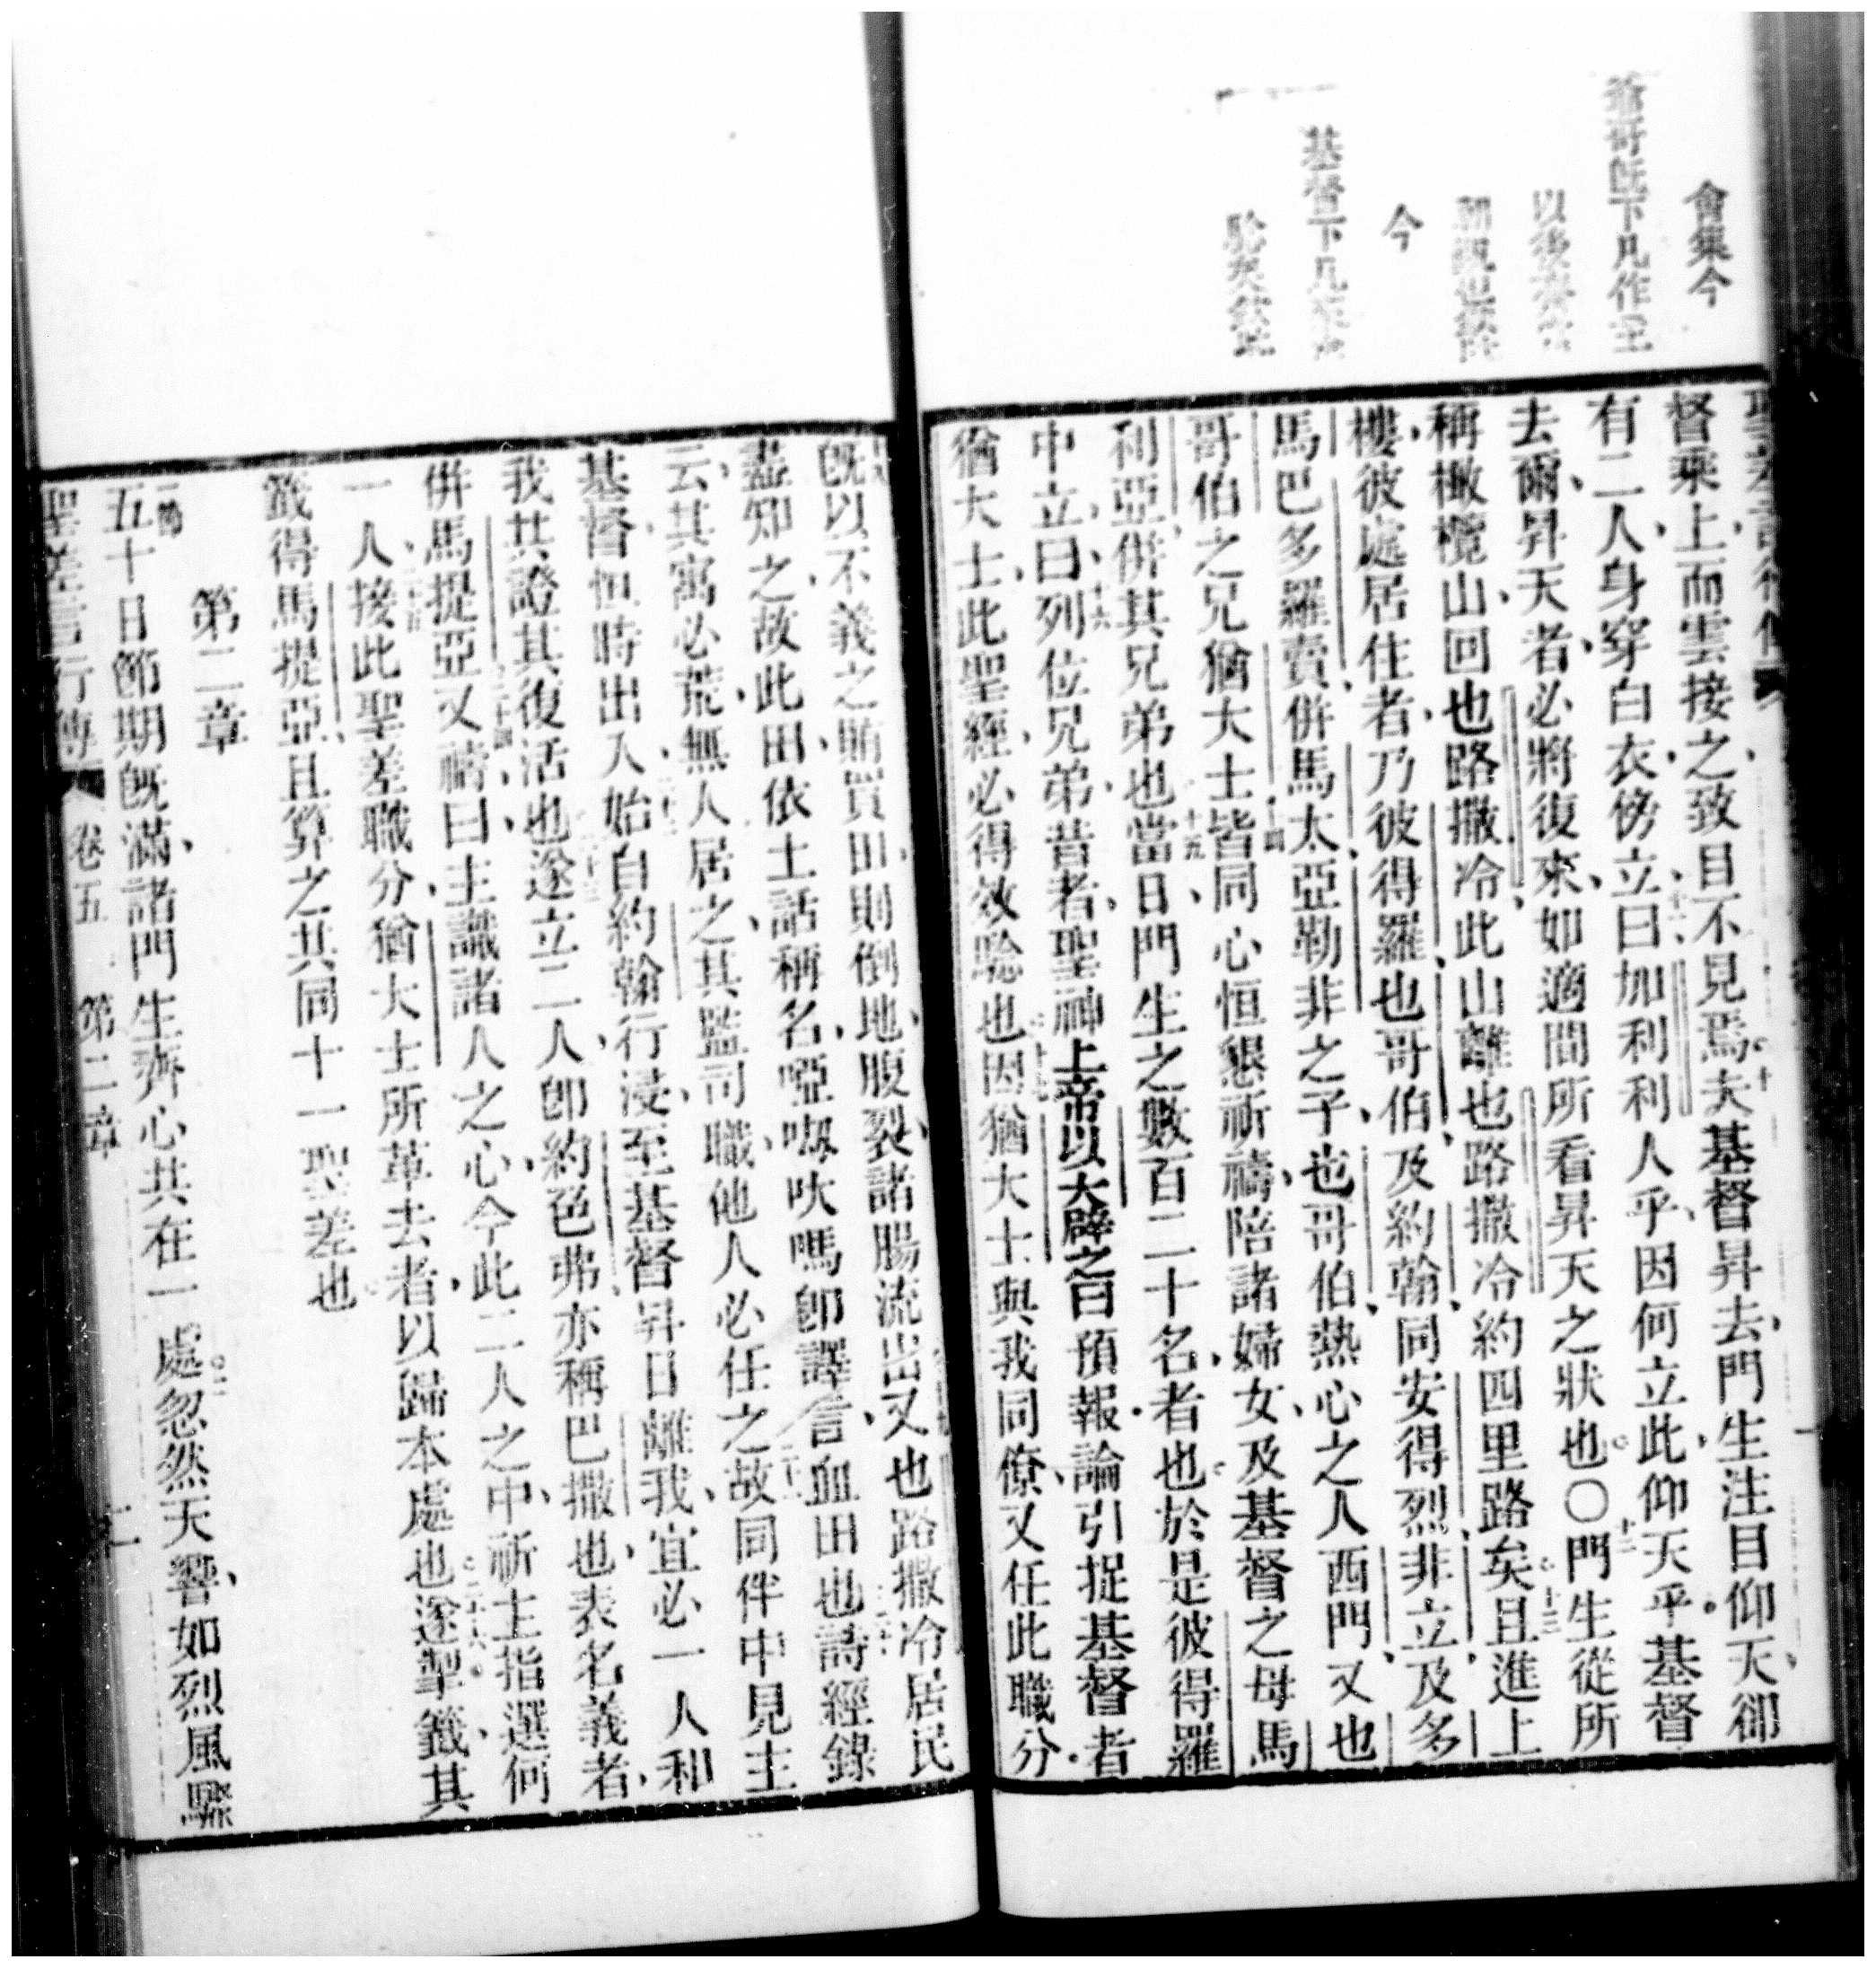 會集今
基督下凡
今
以後
聖差言行傳
督乘上而雲接之致目不見焉夫基督昇去門生注目仰天卻
有二人身穿白衣傍立曰加利利人乎因何立此仰天乎基督
去爾昇天者必將復來如適間所看昇天之狀也〇門生從所
稱橄欖山回也路撒冷此山離也路撒冷約四里路矣且進上
樓彼處居住者乃彼得羅也哥伯及約翰同安得烈非立及多
馬巴多羅賣併馬太亞勒非之子也哥伯熱心之人西門又也
哥伯之兄猶大士皆同心恒懇祈禱陪諸婦女及基督之母馬
利亞併其兄弟也當日門生之數百二十名者也於是彼得羅
中立曰列位兄弟昔者聖神上帝以大辟之口預報論引捉基督者
猶大士此聖經必得效騐也因猶大士與我同僚又任此職分
旣以不義之賄買田則倒地腹裂諸腸流出又也路撒冷居民
盡知之故此田依土話稱名啞嘅吠嗎卽譯言血田也詩經錄
云其寓必荒無人居之其監司職他人必任之故同伴中見主
基督恒時出入始自約翰行浸至基督昇日離我宜必一人和
我共證其復活也遂立二人卽約色弗亦稱巴撒也表名義者
併馬提亞又禱曰主識諸人之心今此二人之中祈主指選何
一人接此聖差職分猶大士所革去者以歸本處也遂掣籤其
籤得馬提亞且算之共同十一聖差也
第二章
五十日節期旣滿諸門生齊心共在一處忽然天響如烈風驟
聖差言行傳 卷五 第二章